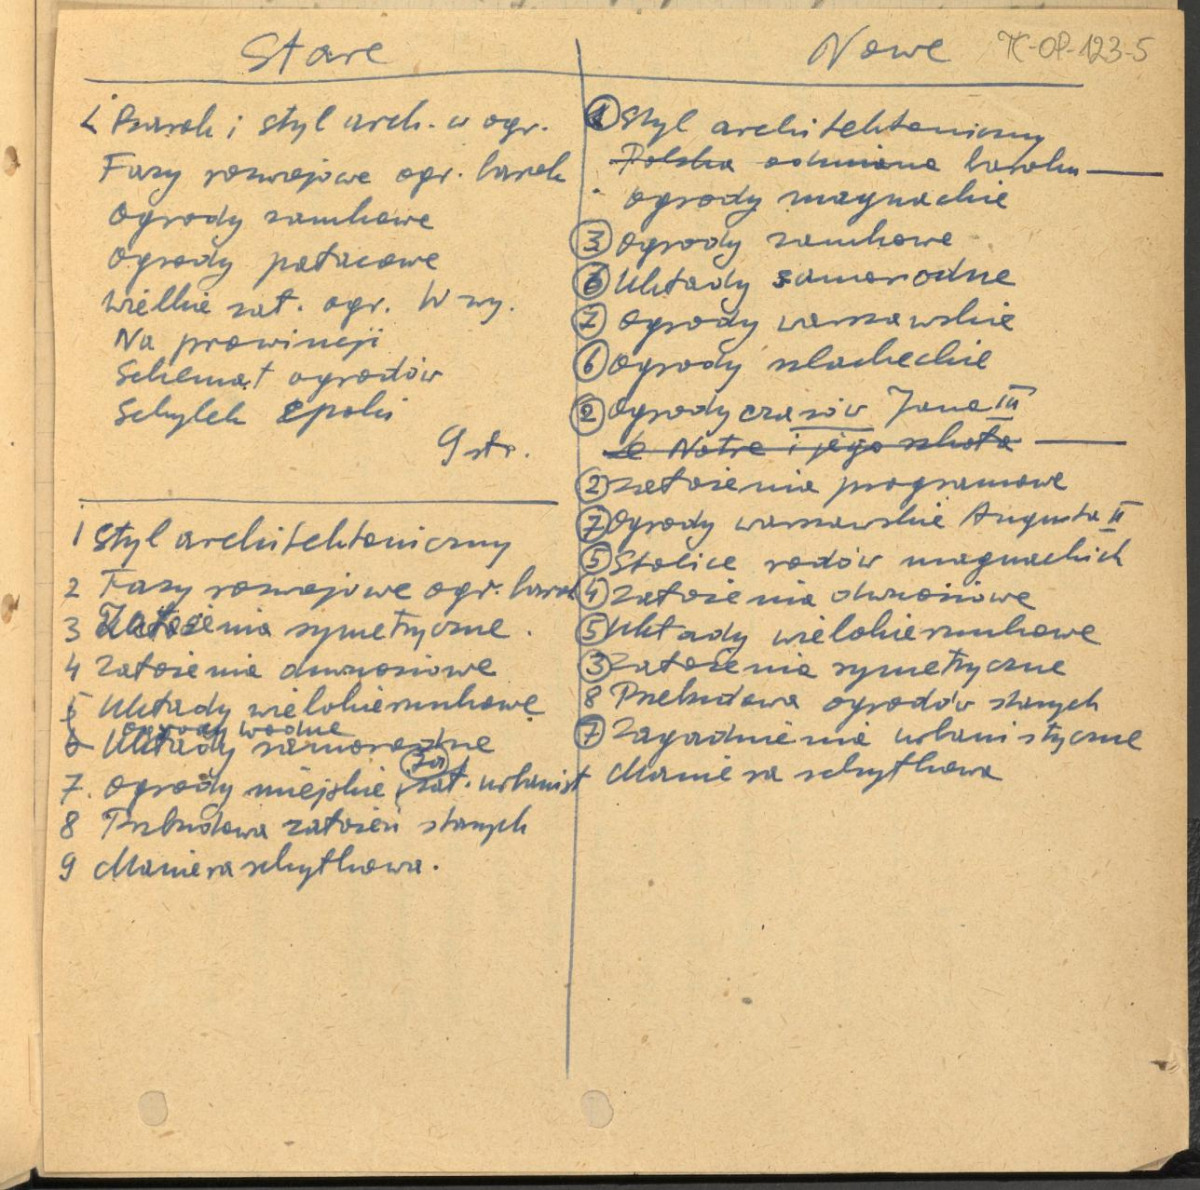 Stare
Barok i styl arch. w ogr.
Fazy rozwojowe ogr. barok
Ogrody zamkowe
Ogrody pałacowe
Wielkie zał. ogr. W-wy.
Na prowincji
Schemat ogrodów
Schyłek epoki
9 str.
1 Styl architektoniczny
2 Fazy rozwojowe ogr. barok
3 Założenia symetryczne.
4 Założenia dwuosiowe
5 Układy wielokierunkowe
ogrody wodne
6 Układy samorodne
7. Ogrody miejskie, zał. urbanist
7a
8 Przebudowa założeń starych
9 Maniera schyłkowa.
Nowe TK-OP-123-5
1 Styl architektoniczny
Polska odmiana baroku
Ogrody magnackie
3 Ogrody zamkowe
6 Układy samorodne
7 Ogrody warszawskie
6 Ogrody szlacheckie
2 Ogrody czasów Jana III
Le Notre i jego szkoła
2 Założenia programowe
7 Ogrody warszawskie Augusta II
5 Stolice rodów magnackich
4 Założenia dwuosiowe
5 Układy wielokierunkowe
3 Założenia symetryczne
8 Przebudowa ogrodów starych
7 Zagadnienia urbanistyczne
Maniera schyłkowa